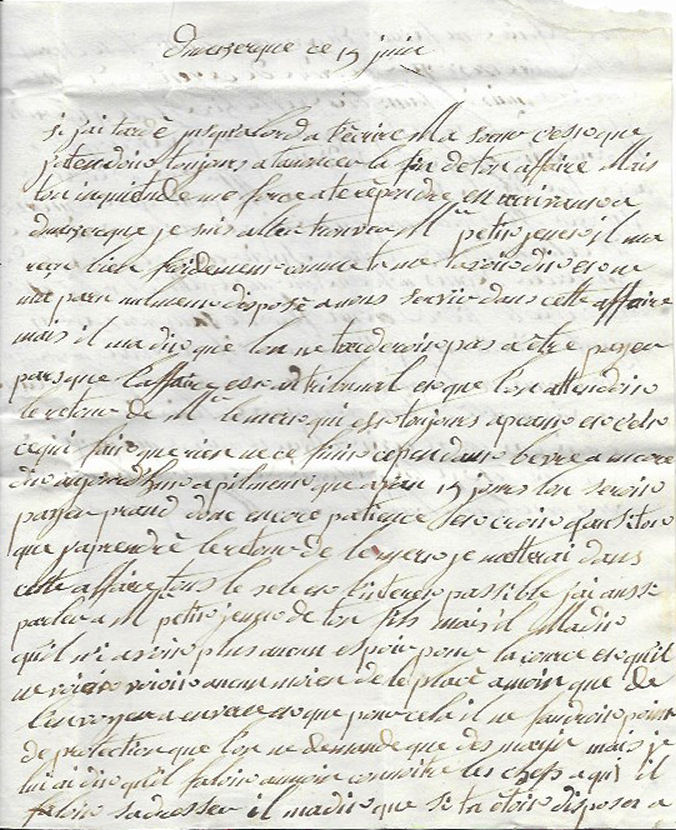 Dunserque ce 15 juin
si j'ai tardé jusqu'alord a t'écrire Ma soeur c'est que
j'atendoit toujours a tanoncer la fin de ton affaire Mais
ton inquietude me force a te répondre en arrivant a
Dunserque je suis allée trouver Mr petit jenest il ma
reçue bien froidement comme tu me l'avoit dit et ne
ma paru nulment disposé a nous servir dans cette affaire
mais il ma dit que l'on ne tarderoit pas a être payer
parsque l'affaire est au tribunal et que l'on attendoit
le retour de Mr lemere qui est toujours a
ce qui fait que rien ne ce finit cependant encore
dit aujourd'hui a que avan 15 jours l'on seroit
payer prand donc encore patience et croit qu'ausitot
que j'aprendré le retour de lemere je metterai dans
cette affaire tous le sele et l'interet possible j'ai aussi
parler a Mr petit jenest de ton fils mais il Madit
qu'il n'i avoit plus aucun espoir pour la course et qu'il
ne voioit aucun moien de le placé a moin que de
l'envoyer a et que pour cela il ne faudroit point
de protection que l'on ne demande que des marin mais je
lui ai dit qu'il faloit aumoin connoitre les chefs a qui il
faloit sadresser il madit que si tu étoit disposer a